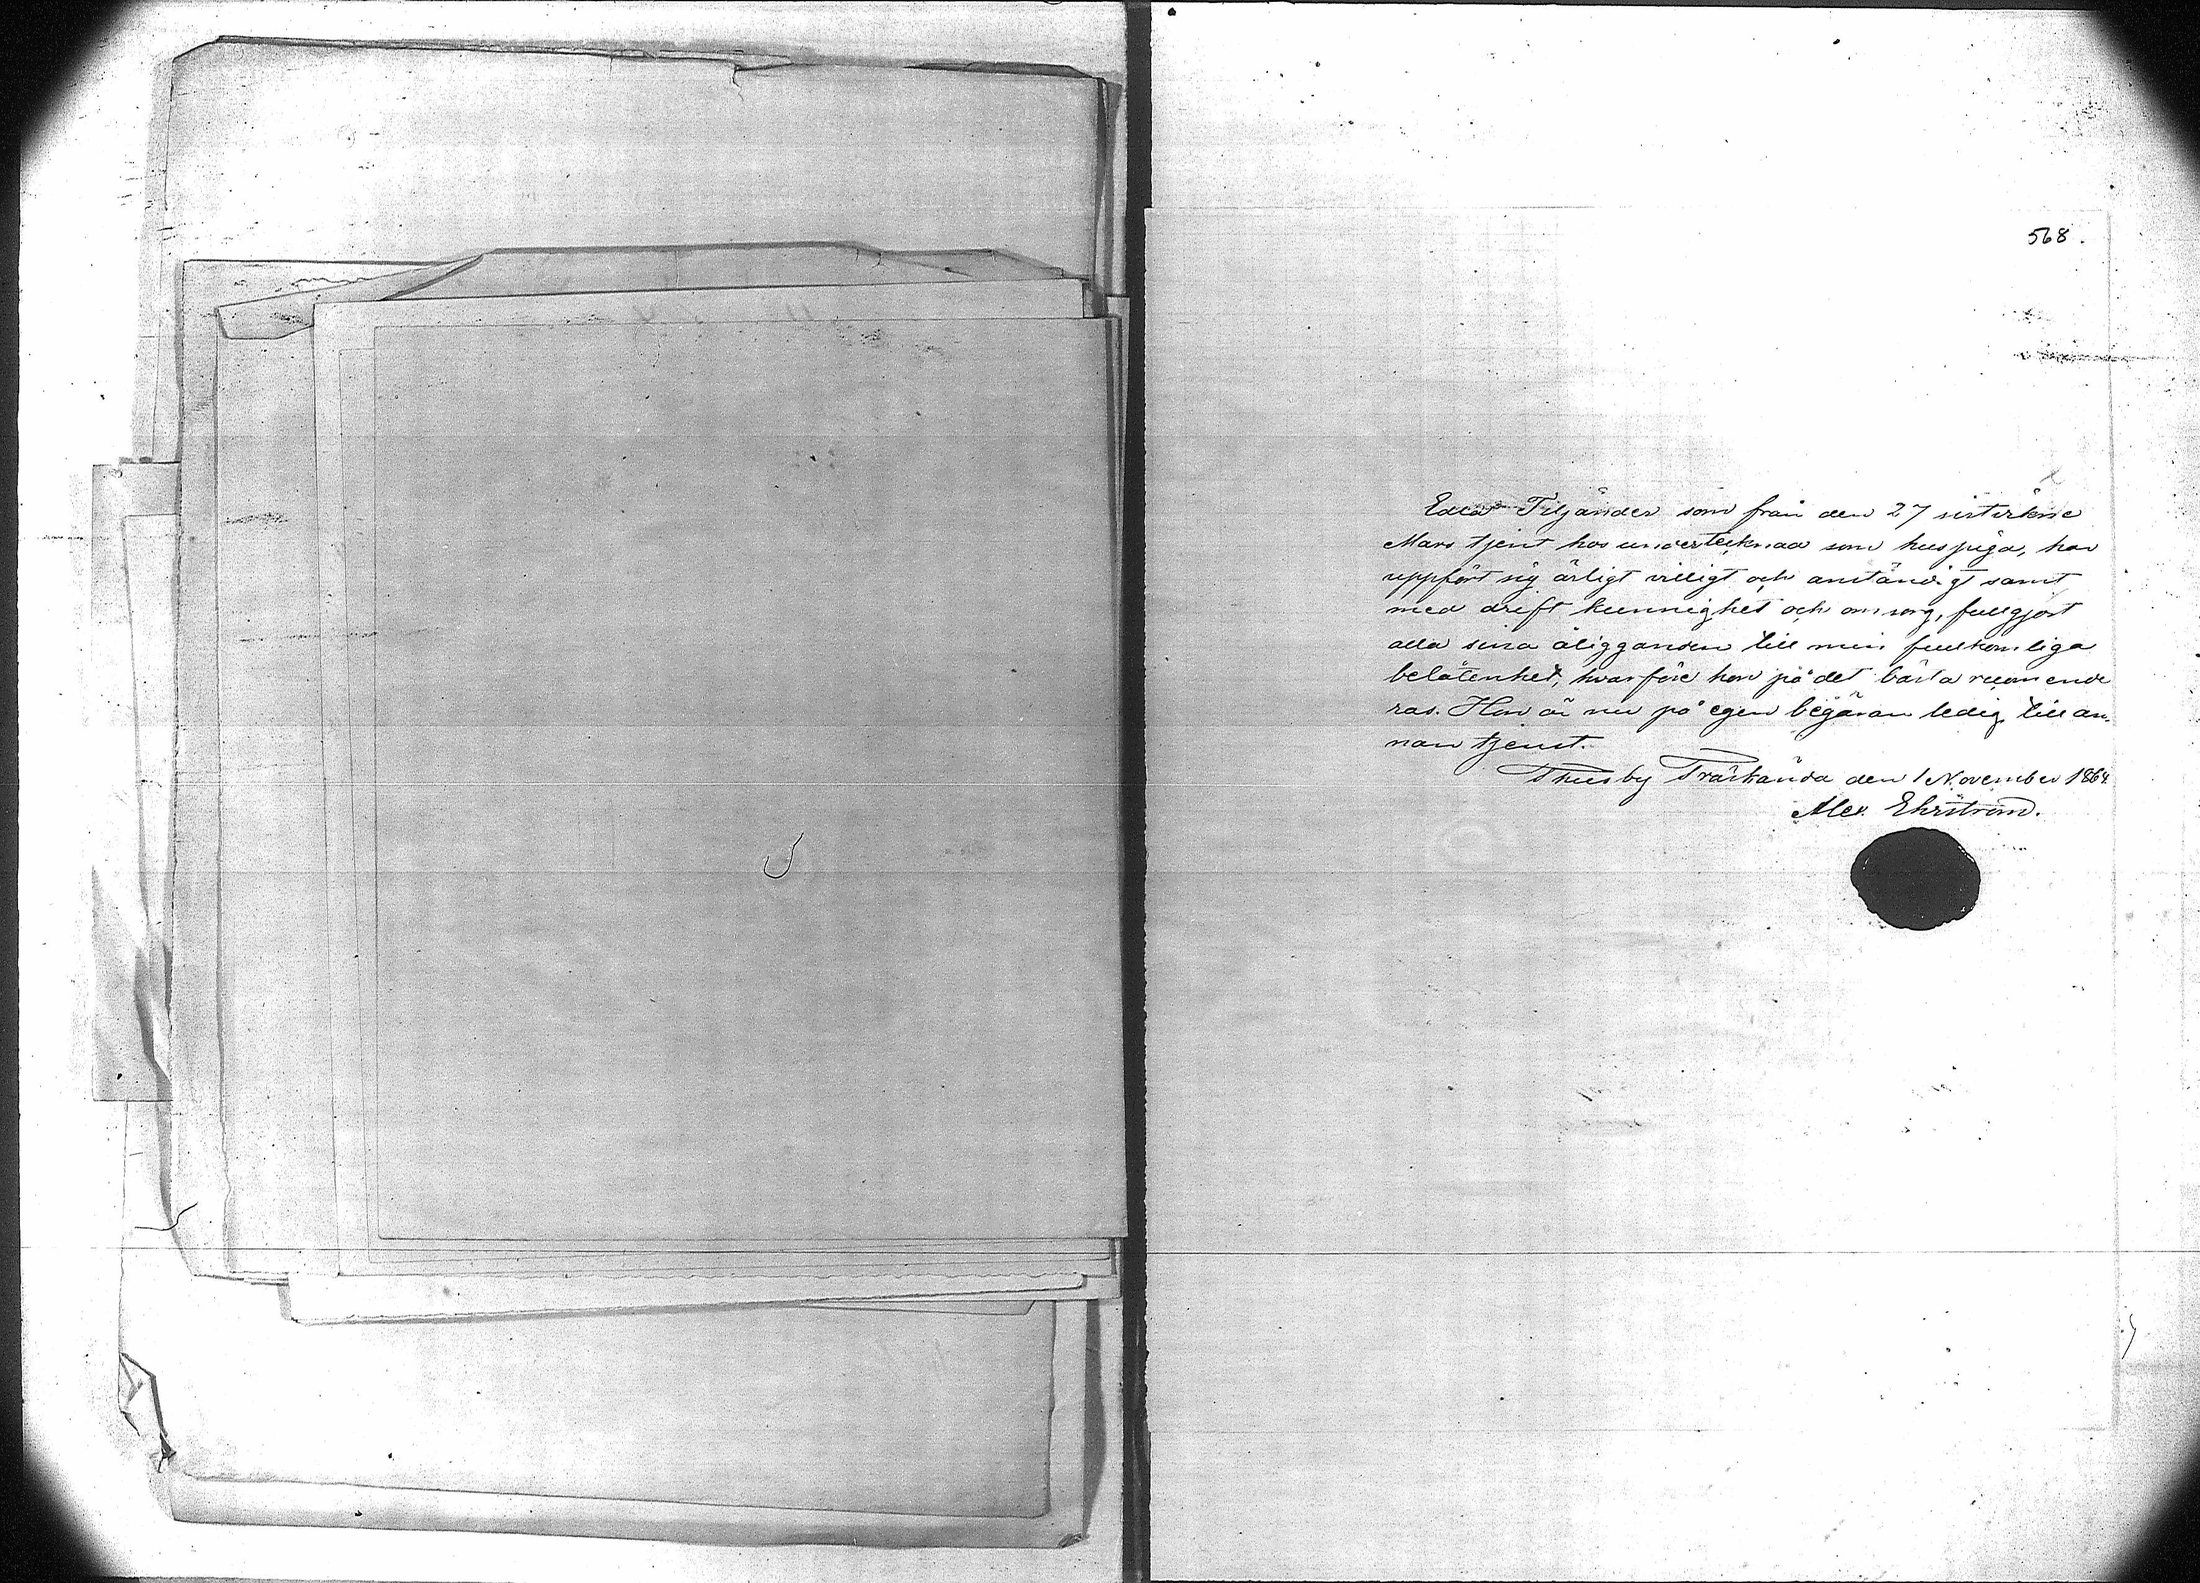 568.
Edla Tiljander som från den 27 sistvikne
Mars tjent hos undertecknad som huspiga, har
uppfört sig ärligt villigt och anständigt samt
med drift kunnighet och omsorg, fullgjort
alla sina åligganden till min fullkomliga
belåtenhet, hvarföre hon på det bästa recomende
ras. Hon är nu på egen begäran ledig till an-
nan tjenst.
Thusby Träskända den 1 November 1864
Alex. Ehrström.